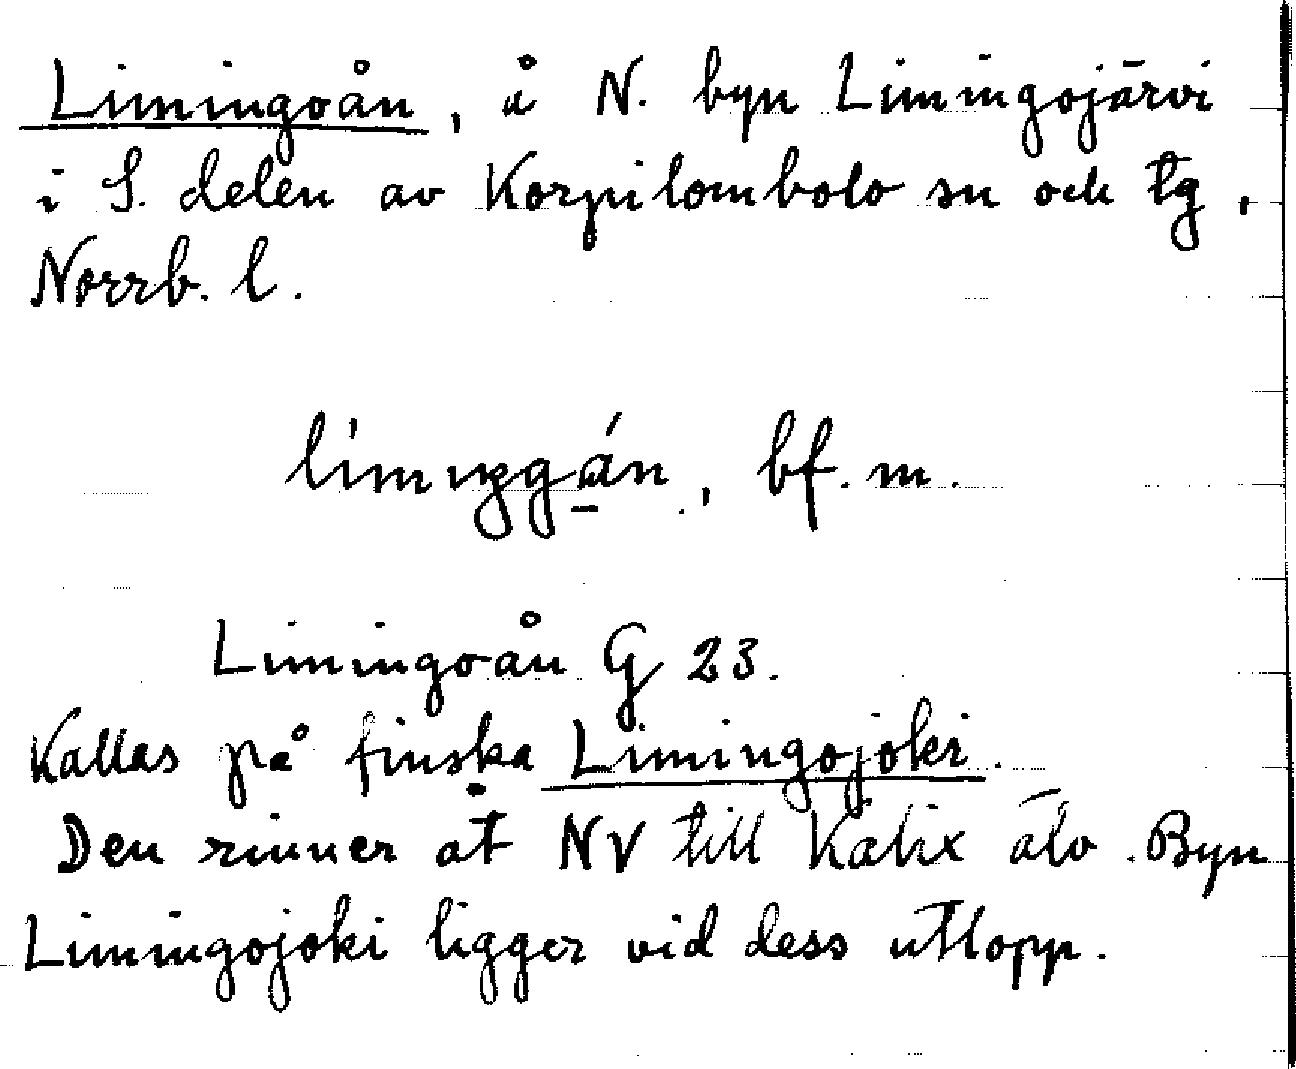 Limingoån, å N. byn Limingojärvi
i S. delen av Korpilombolo sn och tg,
Norrb. l.
bf. m.
Limingoån G 23.
Kallas på finska Limingojoki.
Den rinner åt NV till Kalix älv. Byn
Limingojoki ligger vid dess utlopp.